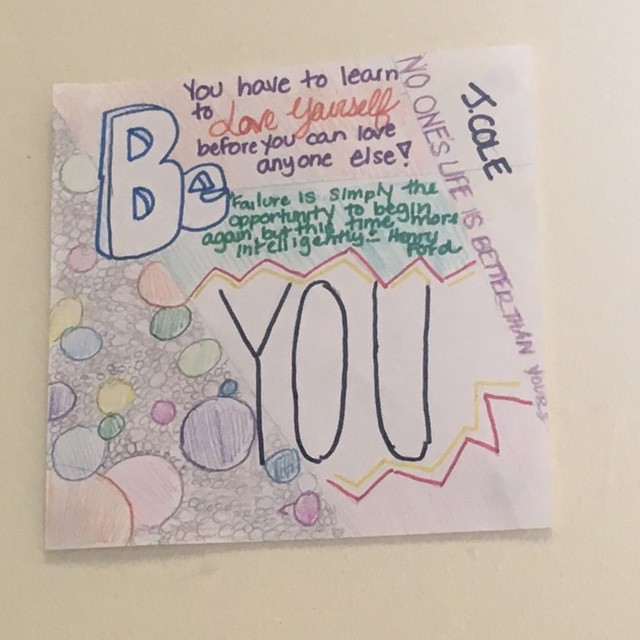 Be
You have to learn
to Love Yourself
before you can love
anyone else!
Failure is simply the
opportunity to begin
again, but this time, more
intelligently - Henry
Ford
YOU
NO ONE'S LIFE IS BETTER THAN YOURS
J. COLE